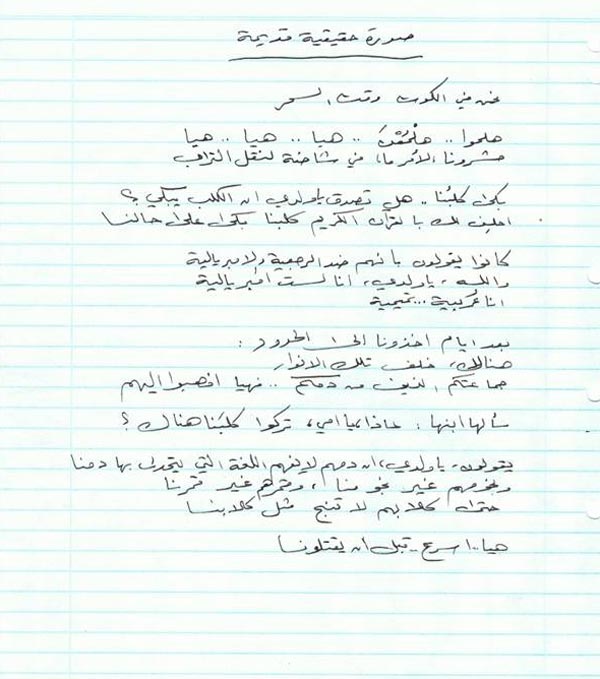 صورة حقيقية قديمة
نحن في الكوت وقت السحر
هلموا .. هلمّوا .. هيا .. هيا .. هيا
حشرونا، لأمر ما، في شاحنة لنقل التراب
بكى كلبُنا .. هل تصدق ياولدي ان الكلب يبكي ؟
احلف لك بالقرآن الكريم كلبنا بكى على حالنا
كانوا يقولون بانهم ضد الرجعية والامبريالية
والله ، ياولدي، انا لست امبريالية
انا عُربية ... تميمية
بعد ايام اخذونا الى الحدود :
هنالك، خلف تلك الانوار
جماعتكم الذين من دمكم .. فهيا اذهبوا اليهم
سألها ابنها : لماذا، يا امي، تركوا كلبَنا هناك ؟
يقولون، ياولدي، ان دمهم لايفهم اللغة التي يتحدث بها دمنا
ونجومهم غير نجومنا ، وقمرهم غير قمرنا
حتى كلابهم لا تنبح مثل كلابنا
هيا .. اسرع .. قبل ان يقتلونا